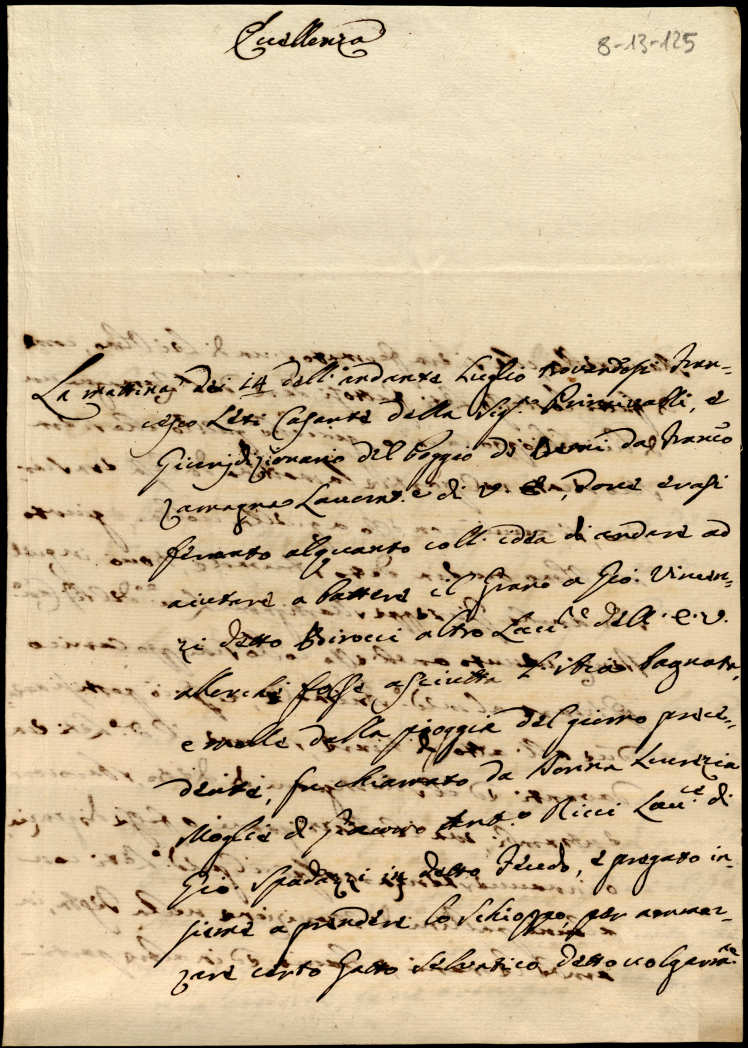 Eccellenza
8-13-125
La mattina dei 14 dell'andante Luglio trovandosi Fran-
cesco Leti Casante della Sig.ra e
Giurisdizionario del Poggio di Berni da Franco
Zamagna Lavor.e di V. E., dove erasi
fermato alquanto coll'idea di andare ad
aiutare a battere il Grano a Gio: Vincen-
zi detto Birocci altro Lav.re dell'E. V.
allorchè fosse asciutta l'Aia bagnata,
e molle della pioggia del giorno prece-
dente, fu chiamato da Donna Lucrezia
Moglie di Giacomo Ant.o Ricci Lav.re di
Gio: Spadazzi in detto Feudo, e pregato in-
sieme a prendere lo Schioppo, per ammaz-
zare certo Gatto Selvatico detto volgarm.te